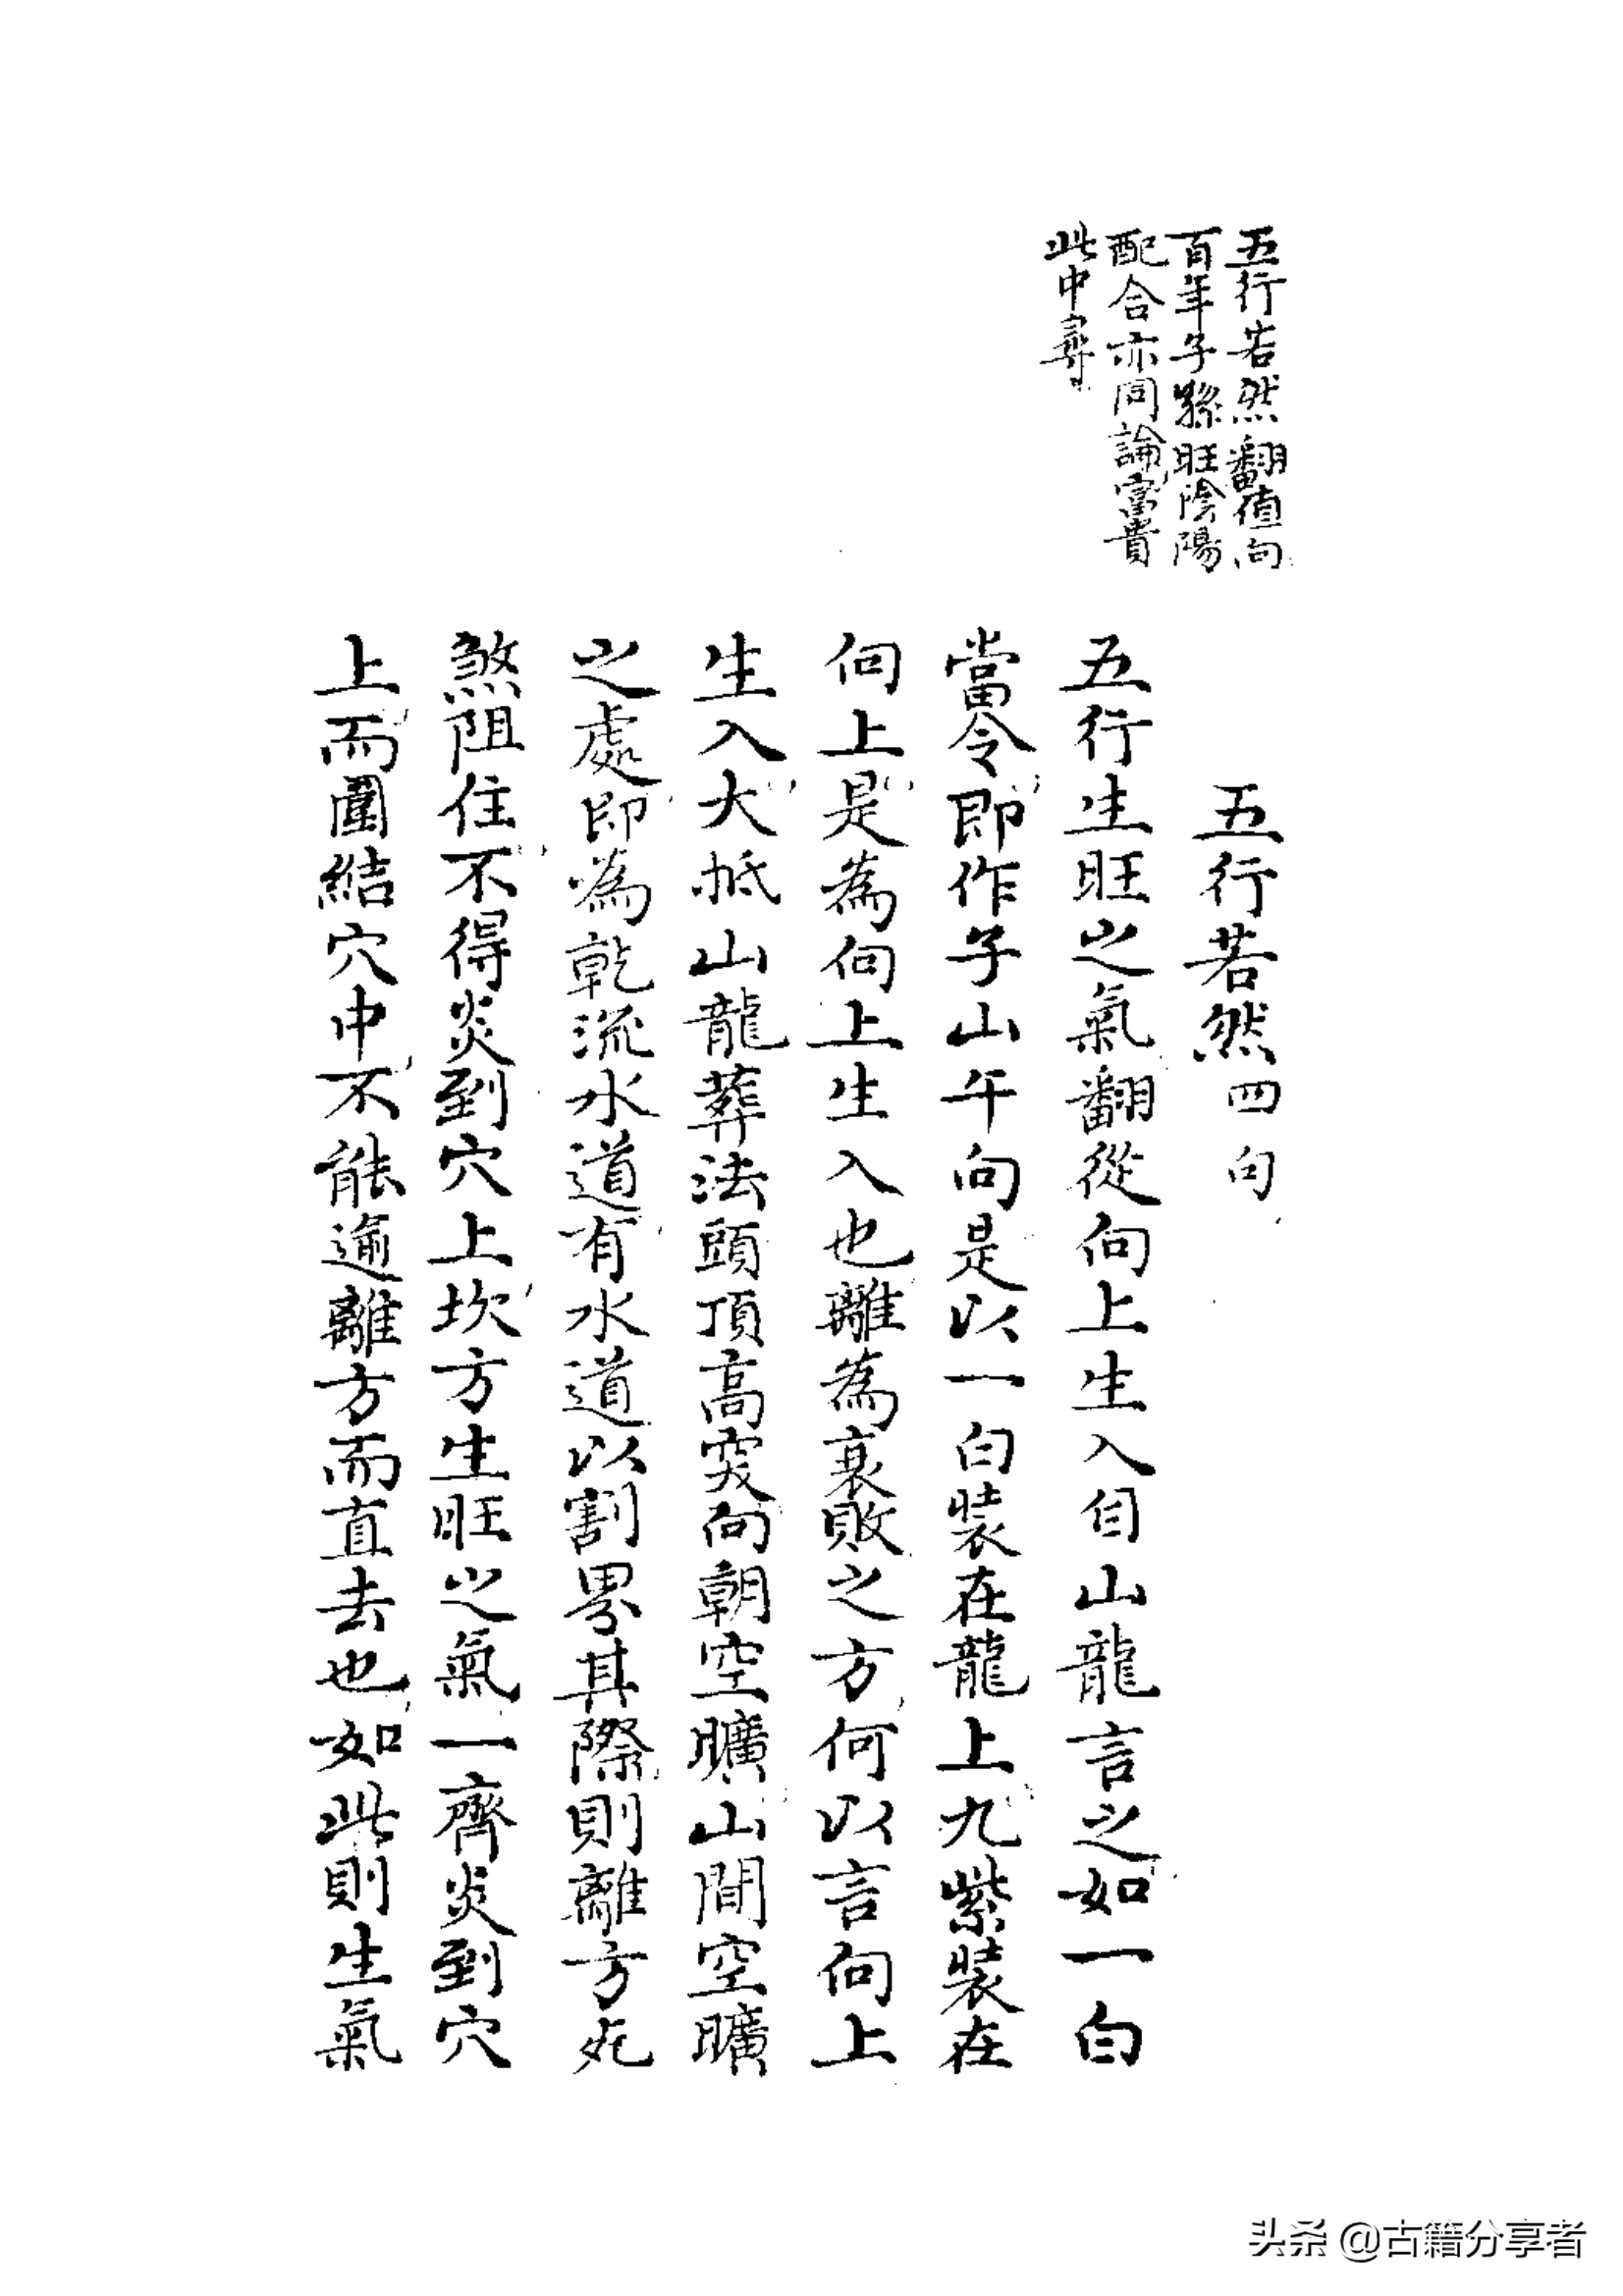 五行若然翻值向
百年子孫旺陰陽
配合亦同論富貴
此中尋
五行若然四句
五行生旺之氣翻從向上生入自山龍言之如一白
當令即作子山午向是以一白裝在龍上九紫裝在
向上是為向上生入也離為衰敗之方何以言向上
生入大抵山龍葬法頭頂高突向朝空曠山間空曠
之處即為乾流水道有水道以割界其際則離方死
煞阻住不得炎到穴上坎方生旺之氣一齊炎到穴
上而團結穴中不能逾離方而直去也如此則生氣
头条 @古籍分享者